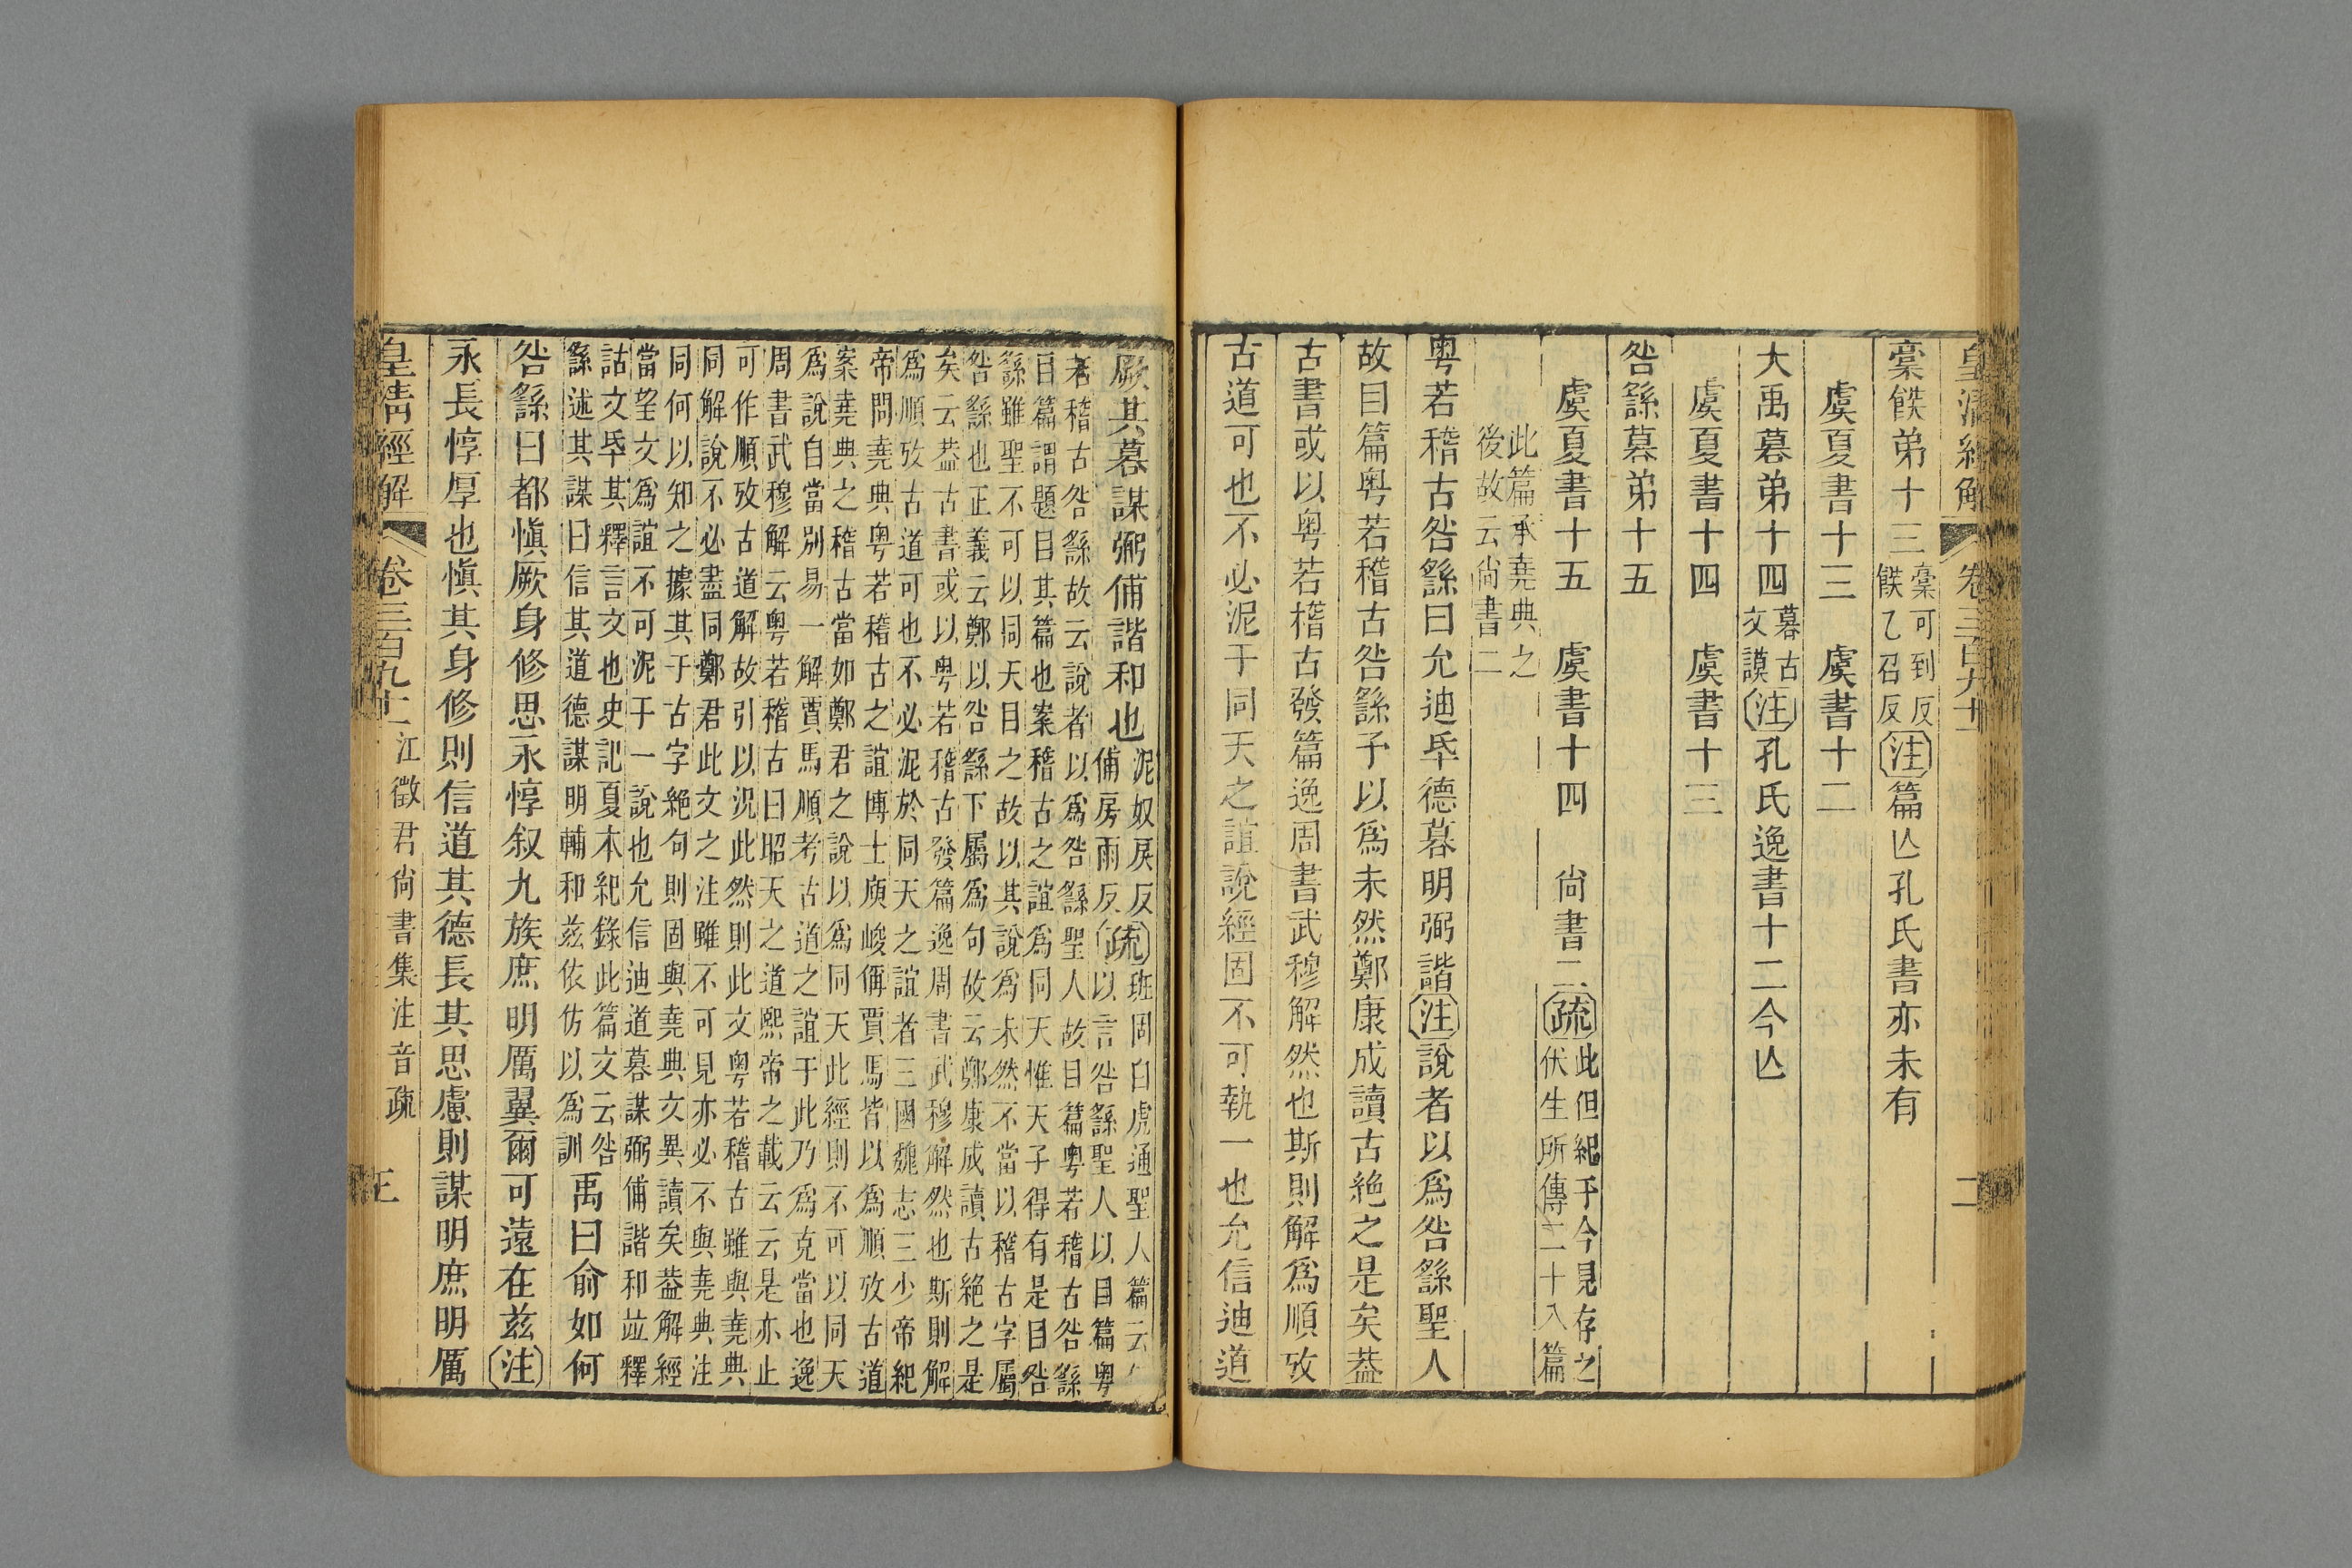 皇清經解 卷三百九十一 二
稾飫弟十三稾可到反飫乙召反注篇亾孔氏書亦未有
虞夏書十三 虞書十二
大禹暮弟十四暮古文謨注孔氏逸書十二今亾
虞夏書十四 虞書十三
咎繇暮弟十五
虞夏書十五 虞書十四 尙書二疏此但紀于今見存之伏生所傳二十八篇
此篇承堯典之後故云尙書二
粤若稽古咎繇曰允迪氒德暮明弼諧注說者以爲咎繇聖人
故目篇粤若稽古咎繇予以爲未然鄭康成讀古絶之是矣葢
古書或以粤若稽古發篇逸周書武穆解然也斯則解爲順攷
古道可也不必泥于同天之誼說經固不可執一也允信迪道
厥其暮謀弼俌諧和也泥奴戾反俌房雨反疏班固白虎通聖人篇云以言咎繇聖人以目篇粤
若稽古咎繇故云說者以爲咎繇聖人故目篇粤若稽古咎繇
目篇謂題目其篇也案稽古之誼爲同天惟天子得有是目咎
繇雖聖不可以同天目之故以其說爲未然不當以稽古字屬
咎繇也正義云鄭以咎繇下屬爲句故云鄭康成讀古絶之是
矣云葢古書或以粤若稽古發篇逸周書武穆解然也斯則解
爲順攷古道可也不必泥於同天之誼者三國魏志三少帝紀
帝問堯典粤若稽古之誼博士庾峻偁賈馬皆以爲順攷古道
案堯典之稽古當如鄭君之說以爲同天此經則不可以同天
爲說自當別易一解賈馬順考古道之誼于此乃爲克當也逸
周書武穆解云粤若稽古曰昭天之道熙帝之載云云是亦止
可作順攷古道解故引以況此然則此文粤若稽古雖與堯典
同解說不必盡同鄭君此文之注雖不可見亦必不與堯典注
同何以知之據其于古字絶句則固與堯典文異讀矣葢解經
當望文爲誼不可泥于一說也允信迪道暮謀弼俌諧和竝釋
詁文氒其釋言文也史記夏本紀錄此篇文云咎
繇述其謀曰信其道德謀明輔和兹依仿以爲訓 禹曰俞如何
咎繇曰都愼厥身修思永惇叙九族庶明厲翼爾可遠在兹注
永長惇厚也愼其身修則信道其德長其思慮則謀明庶明厲
皇清經解 卷三百九十一 江徵君尙書集注音疏